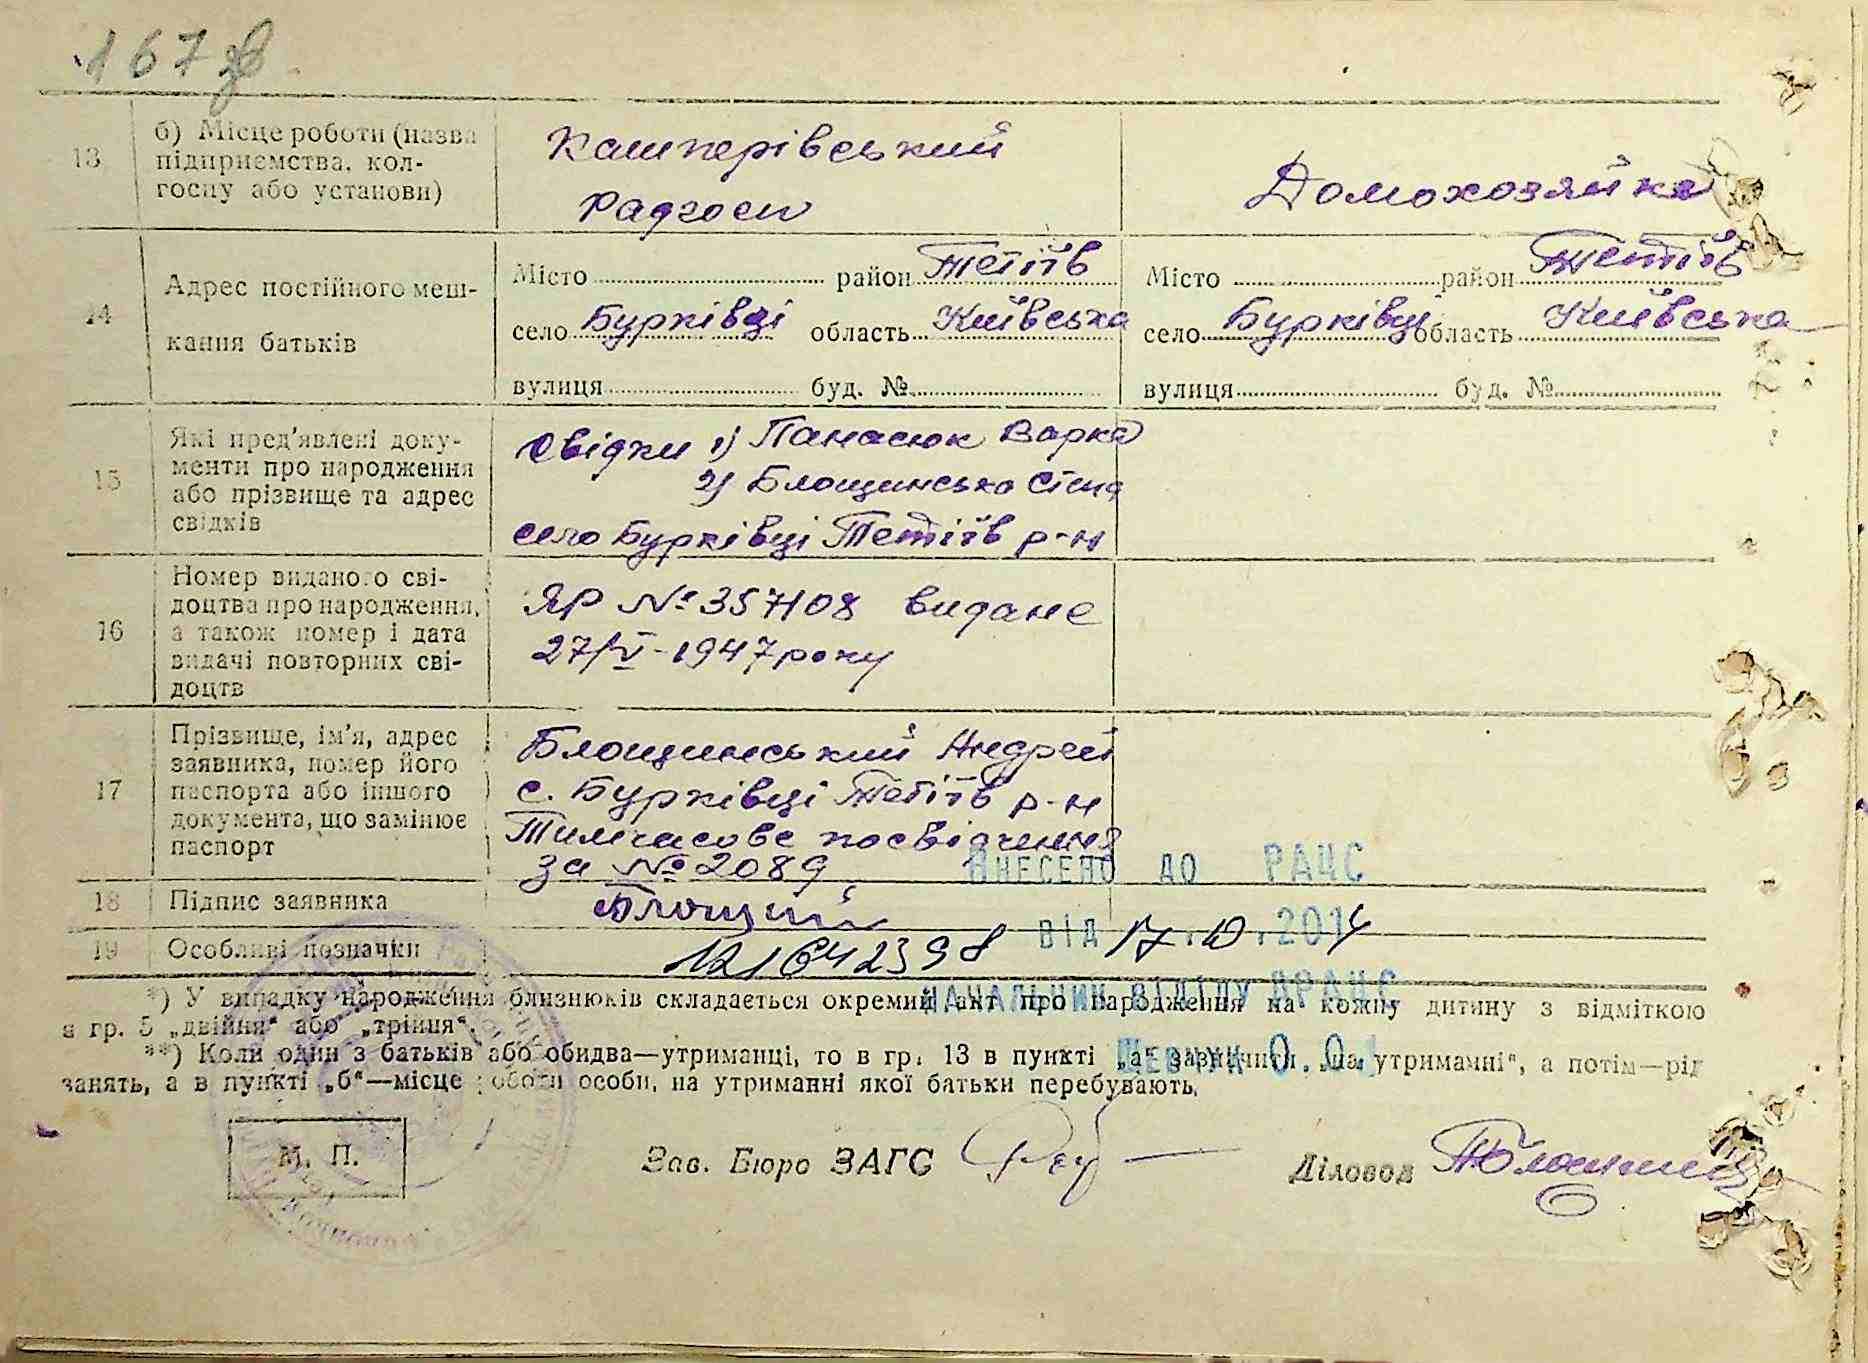 167 зв
13
б) Місце роботи (назва
підприємства, кол-
госпу або установи)
Кашперівський
Радгосп
Домохозяйка
14
Адрес постійного меш-
кання батьків
Місто район Тетіїв
село Бурківці область Київська
вулиця буд. №
Місто район Тетіїв
село Бурківці область Київська
вулиця буд. №
15
Які пред'явлені доку-
менти про народження
або прізвище та адрес
свідків
Свідки 1) Панасюк Варка
2) Блощинська
село Бурківці Тетіїв р-н
16
Номер виданого сві-
доцтва про народження,
а також номер і дата
видачі повторних сві-
доцтв
ЯР № 357108 видане
27/V-1947 року
17
Прізвище, ім'я, адрес
заявника, номер його
паспорта або іншого
документа, що замінює
паспорт
Блощинський Андрей
с. Бурківці Тетіїв р-н
Тимчасове посвідчення
за № 2089
18
Підпис заявника
19
Особливі позначки
121642398
ВНЕСЕНО ДО РАЦС
ВІД 17.10.2014
НАЧАЛЬНИК ВІДДІЛУ ДРАЦС
ШЕВЧУК О.О.
*) У випадку народження близнюків складається окремий акт про народження на кожну дитину з відміткою
в гр. 5 „двійня" або „трійня".
**) Коли один з батьків або обидва—утриманці, то в гр. 13 в пункті „а" зазначити „на утриманні", а потім—рід
занять, а в пункті „б"—місце роботи особи, на утриманні якої батьки перебувають.
М. П.
Зав. Бюро ЗАГС
Діловод